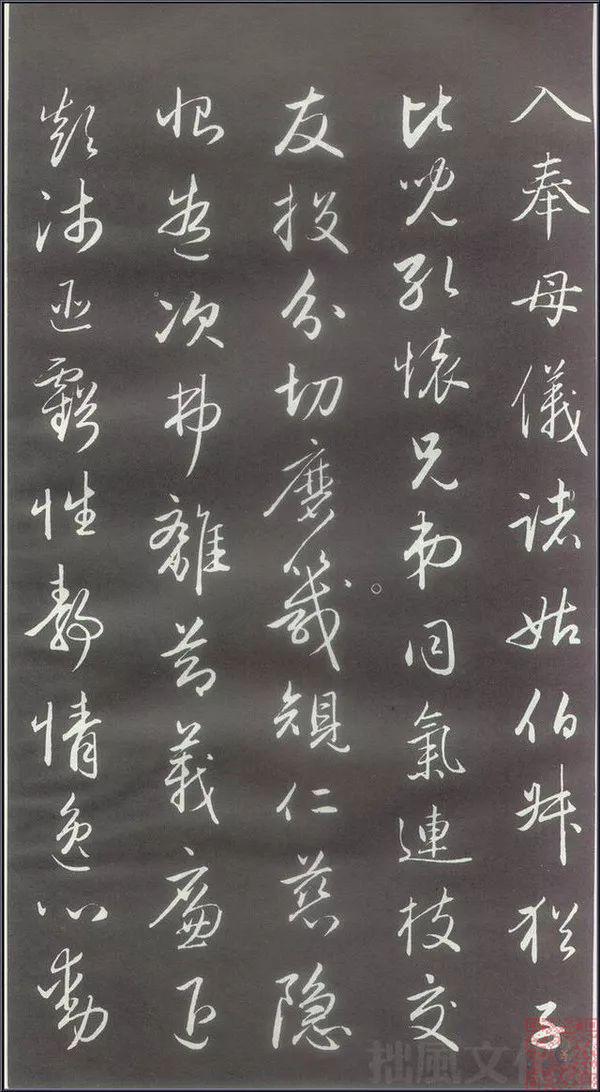 入奉母儀諸姑伯叔猶子
比兒孔懷兄弟同氣連枝交
友投分切磨箴規仁慈隱
惻造次弗離節義廉退
顛沛匪虧性靜情逸心動
拙風文化